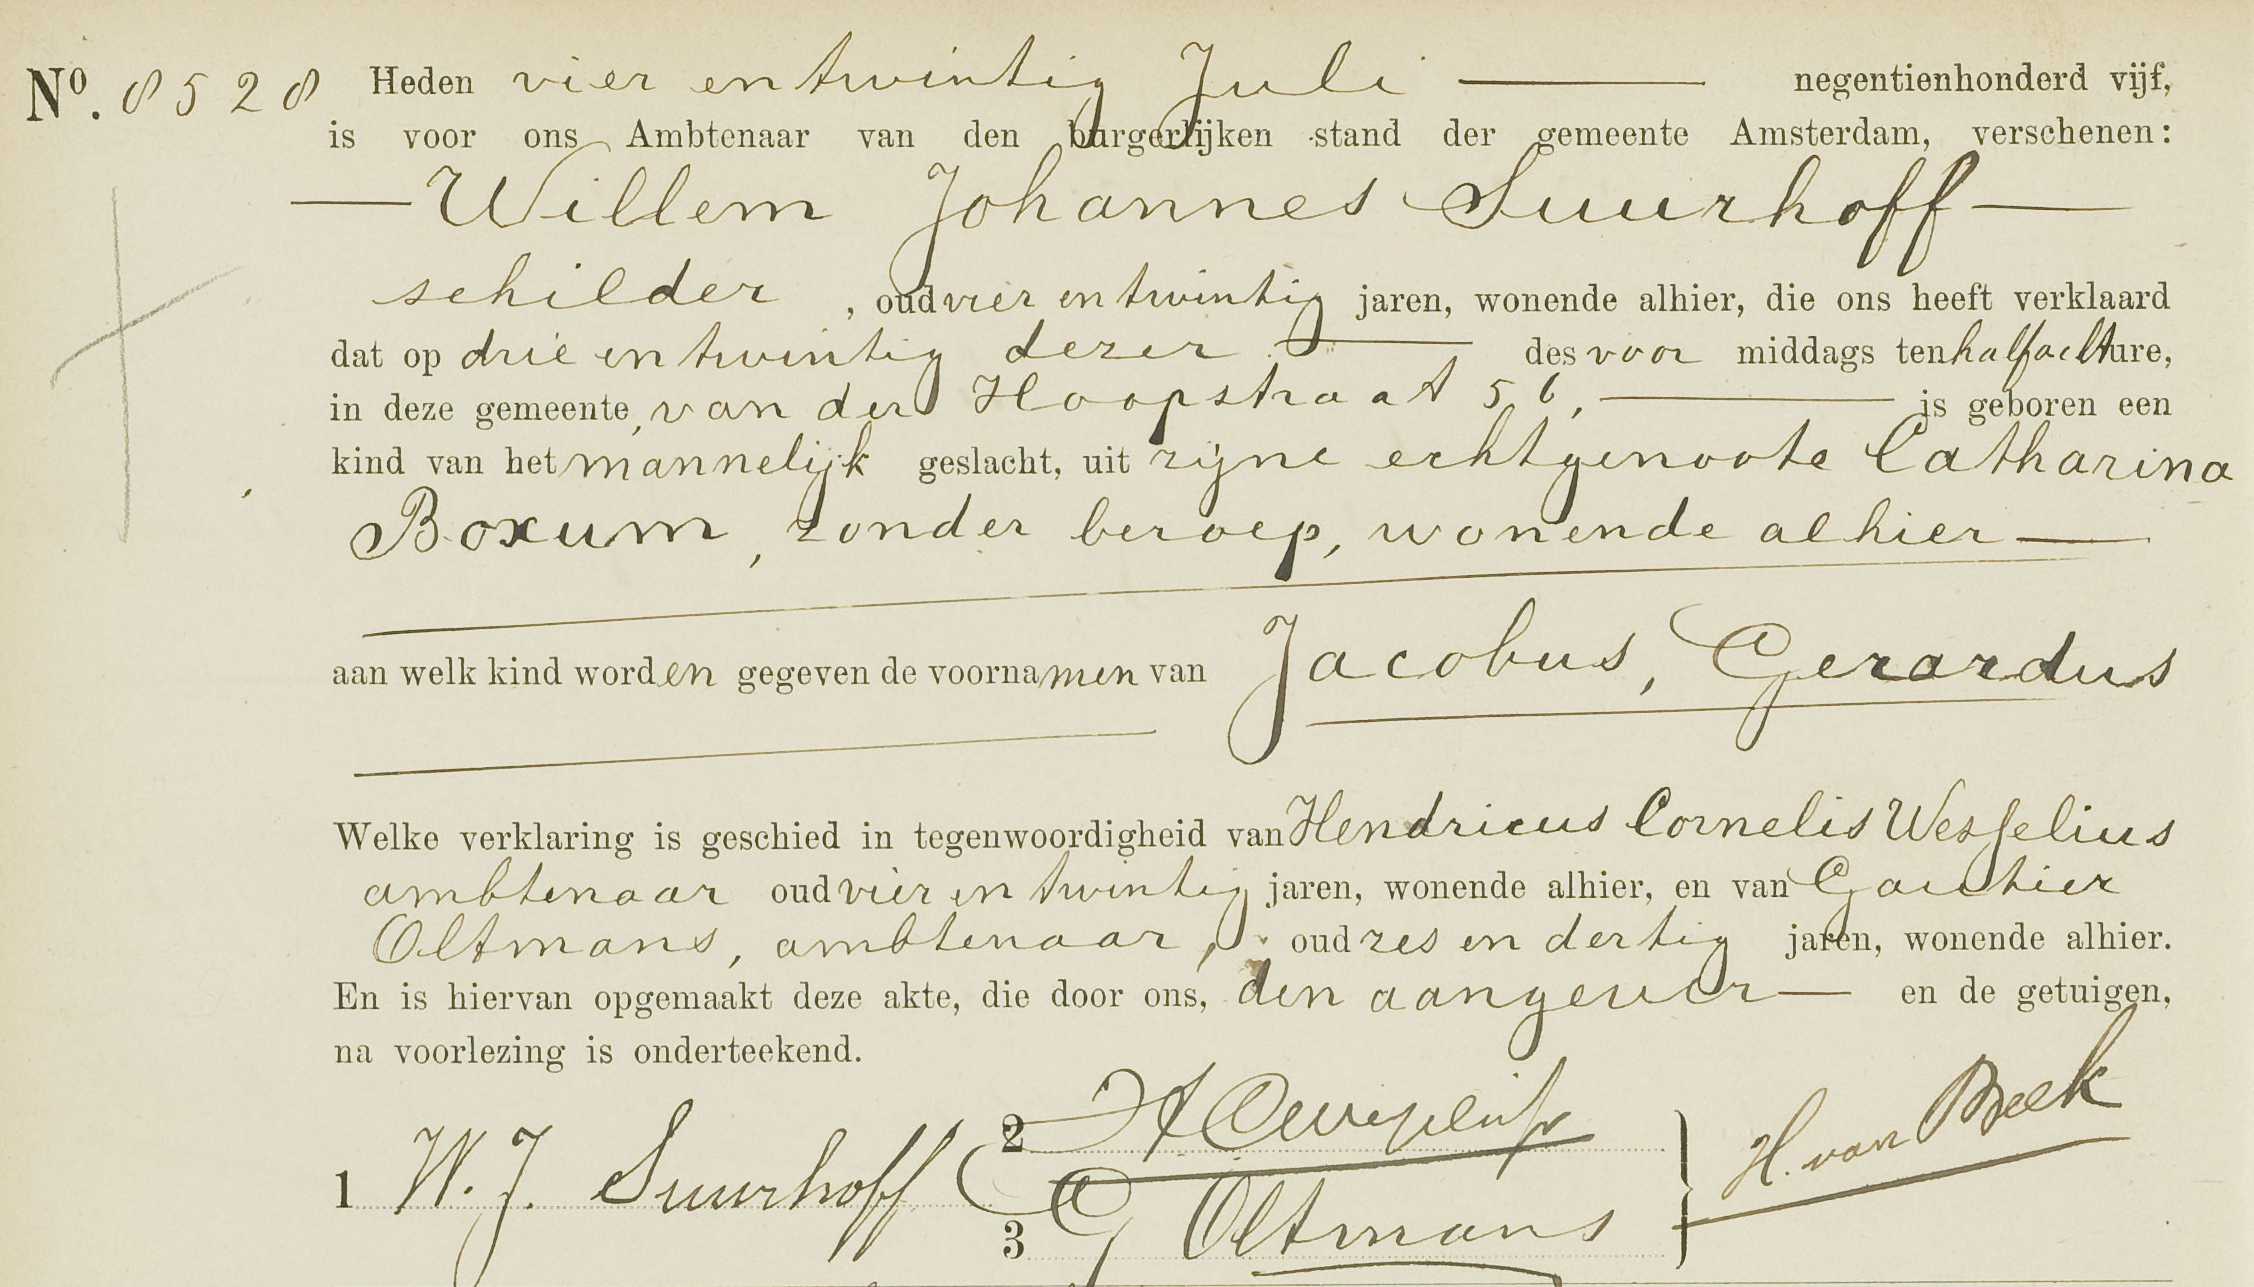 No. 8528 Heden vier en twintig Juli negentienhonderd vijf,
is voor ons Ambtenaar van den burgerlijken stand der gemeente Amsterdam, verschenen:
Willem Johannes Suurhoff
schilder, oud vier en twintig jaren, wonende alhier, die ons heeft verklaard
dat op drie en twintig dezer des voor middags ten half acht ure,
in deze gemeente, van der Hoopstraat 56, is geboren een
kind van het mannelijk geslacht, uit zijne echtgenoote Catharina
Boxum, zonder beroep, wonende alhier
aan welk kind worden gegeven de voornamen van Jacobus, Gerardus
Welke verklaring is geschied in tegenwoordigheid van Hendricus Cornelis Wesselius
ambtenaar oud vier en twintig jaren, wonende alhier, en van Gautier
Oltmans, ambtenaar, oud zes en dertig jaren, wonende alhier.
En is hiervan opgemaakt deze akte, die door ons, den aangever en de getuigen,
na voorlezing is onderteekend.
1 W. J. Suurhoff
2 HCWesselius
3 G Oltmans
H. van Beek